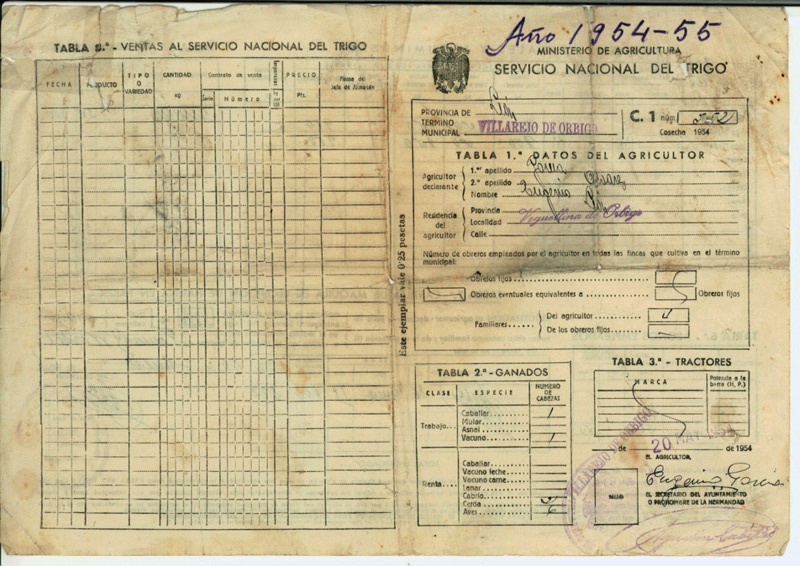 TABLA 8.ª - VENTAS AL SERVICIO NACIONAL DEL TRIGO
FECHA
PRODUCTO
TIPO O VARIEDAD
CANTIDAD
KG
Contrato de venta
Serie
Número
PRECIO
Pts.
Firma del Jefe de Almacén
Este ejemplar vale 0'25 pesetas
Año 1954-55
MINISTERIO DE AGRICULTURA
SERVICIO NACIONAL DEL TRIGO
PROVINCIA DE León
TERMINO MUNICIPAL VILLAREJO DE ORBIGO
C. 1 núm.
Cosecha 1954
TABLA 1.ª DATOS DEL AGRICULTOR
Agricultor declarante
1.er apellido García
2.º apellido
Nombre Eugenio
Residencia del agricultor
Provincia León
Localidad Veguellina de Orbigo
Calle
Número de obreros empleados por el agricultor en todas las fincas que cultiva en el término municipal:
Obreros fijos
Obreros eventuales equivalentes a Obreros fijos
Familiares
Del agricultor
De los obreros fijos
TABLA 2.ª - GANADOS
CLASE
ESPECIE
NUMERO DE CABEZAS
Trabajo
Caballar 1
Mular
Asnal
Vacuno 1
Renta
Caballar
Vacuno leche
Vacuno carne
Lanar
Cabrío
Cerda
Aves
TABLA 3.ª - TRACTORES
MARCA
Potencia a la barra (H. P.)
VILLAREJO DE ORBIGO
de 20 MAY 1954 de 1954
EL AGRICULTOR,
Eugenio García
EL SECRETARIO DEL AYUNTAMIENTO
O PROHOMBRE DE LA HERMANDAD